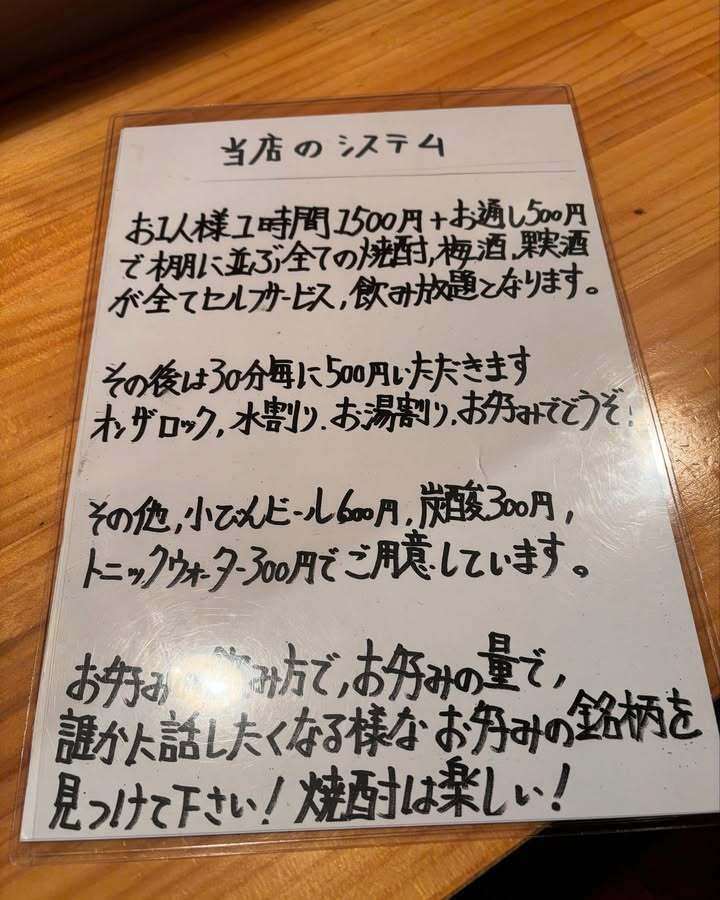 当店のシステム
お1人様1時間1500円+お通し500円
で棚に並ぶ全ての焼酎,梅酒,果実酒
が全てセルフサービス,飲み放題となります。
その後は30分毎に500円いただきます
オンザロック,水割り.お湯割り.お好みでどうぞ!
その他,小びんビール600円,炭酸300円,
トニックウォーター300円でご用意しています。
お好み み方で,お好みの量で,
誰かに話したくなる様なお好みの銘柄を
見つけて下さい!焼酎は楽しい!